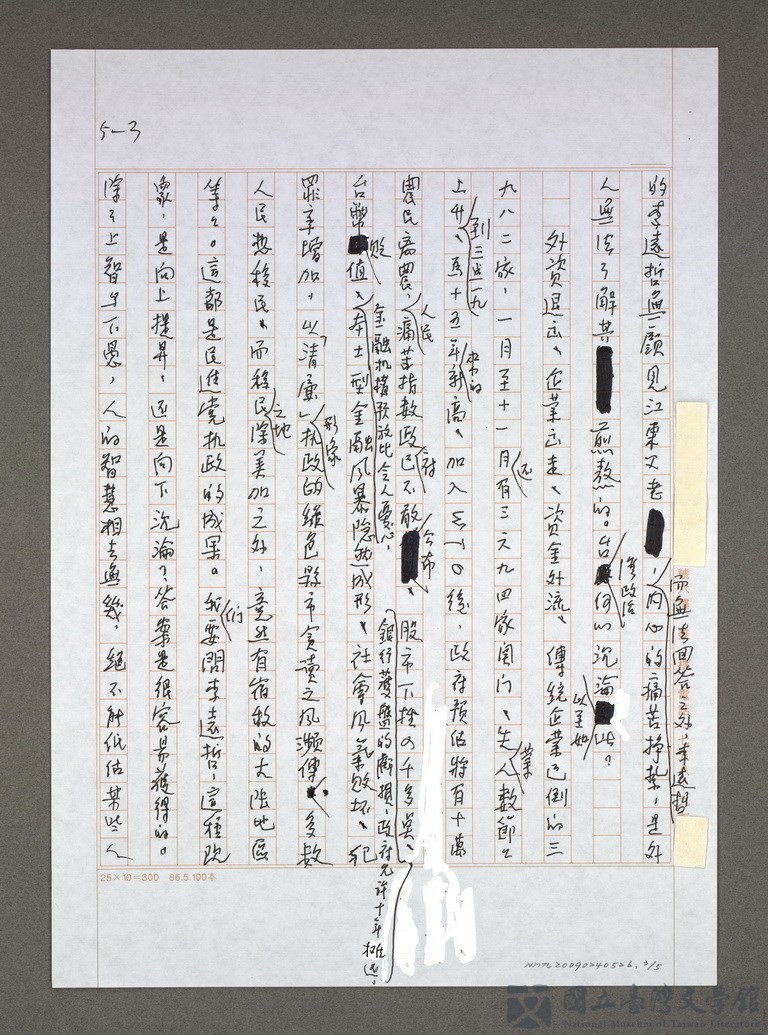 5-3
的李遠哲無顏見江東父老，內心的痛苦掙扎，是外
而無法回答之外，李遠哲
人無法了解其煎熬的。台灣政治何以沉淪以至如此？
外資退出、企業出走、資金外流、傳統企業已倒的三
九八二家，一月至十一月有三六九四家關門、失業人數節節
上升、到三點一九為十五年來的新高、加入WTO後，政府預估將有十萬
農民離農，人民痛苦指數政府已不敢公布、股市下挫四千多點、
金融機構預放比令人憂心，銀行營盤的虧損，政府允許十年攤還，
台幣貶值、本土型金融風暴隱然成形、社會風氣敗壞、犯
罪率增加，以「清廉」形象執政的綠色縣市貪瀆之風頻傳、多數
人民想移民、而移民之地除美加之外，竟然有宿敵的大陸地區
等等。這都是民進黨執政的成果。我們要問李遠哲，這種現
象，是向上提昇，還是向下沉淪？答案是很容易獲得的。
除了上智與下愚，人的智慧相去無幾，絕不能低估某些人
25×10=300 86.5.100本
NMTL20090240526. 3/5
國立臺灣文學館
National Museum of Taiwan Literature